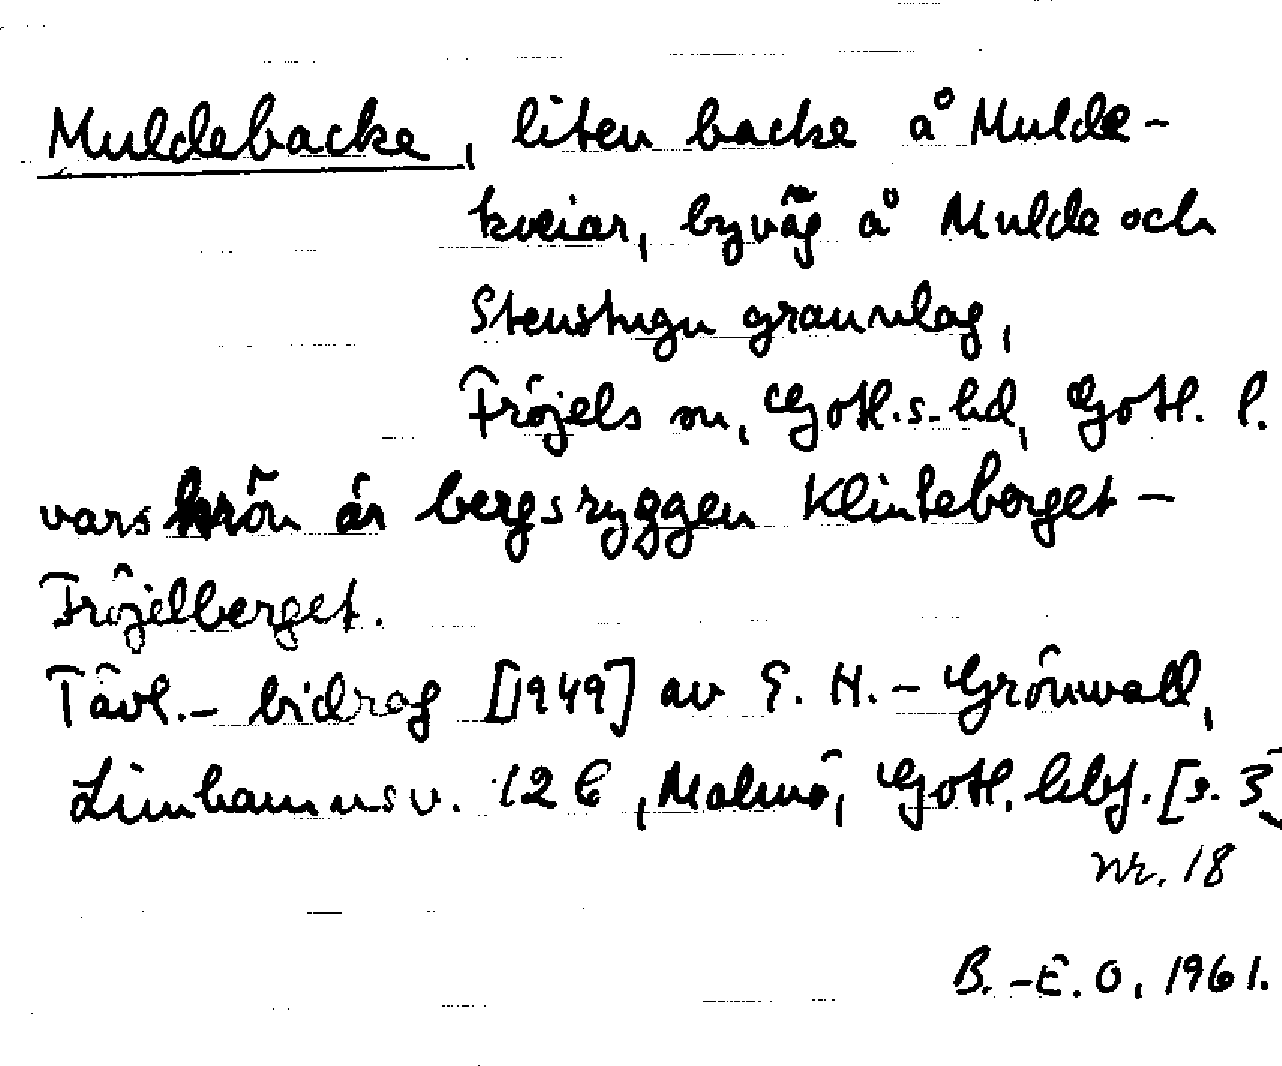 Muldebacke, liten backe å Mulde-
kveiar, byväg å Mulde och
Stenstugu grannlag,
Fröjels sn, Gotl.s.hd, Gotl. l.
vars krön är bergsryggen Klinteberget -
Fröjelberget.
Tävl.- bidrag [1949] av E. H.- Grönwall,
Limhamnsv. 12 C, Malmö, Gotl. [s. 3]
Nr. 18
B.-E.O, 1961.